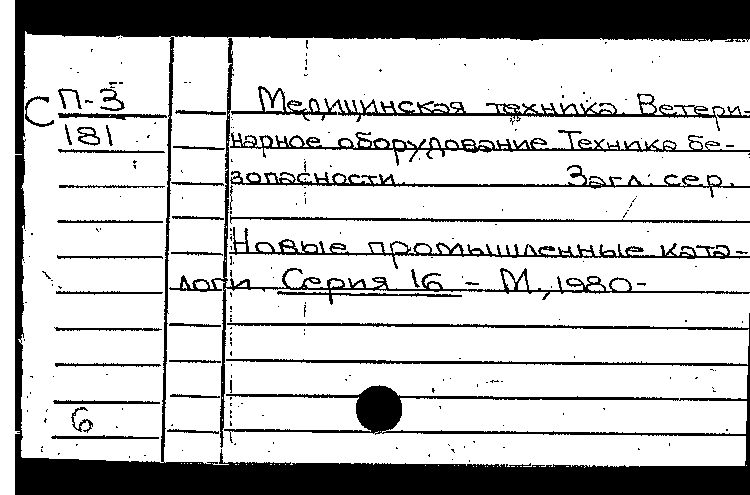 С П-3
181
Медицинская техника. Ветери-
нарное оборудование. Техника бе-
зопасности. Загл. сер.
Новые промышленные ката-
логи. Серия 16 - М., 1980-
6